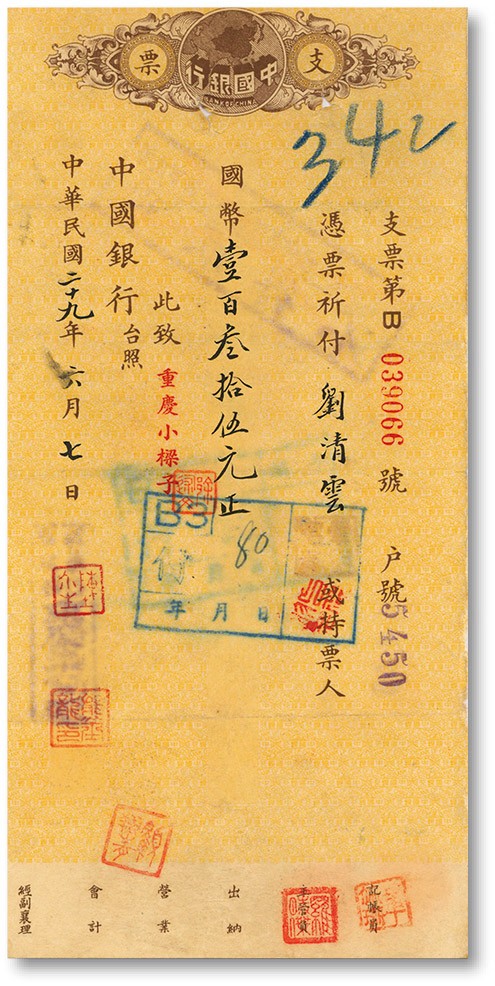 支
中國銀行
票
BANK OF CHINA
342
支票第B 039066 號 户號5450
憑票祈付 劉清雲 或持票人
國幣壹百叁拾伍元正
此致 重慶小樑子
中國銀行台照
中華民國二十九年六月七日
付
80
年 月 日
記賬員
主管員
出納
營業
會計
經副襄理